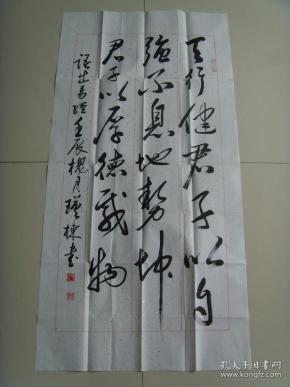 天行健君子以自
强不息地势坤
君子以厚德载物
语出易经壬辰槐月瑾栋书
孔夫子旧书网